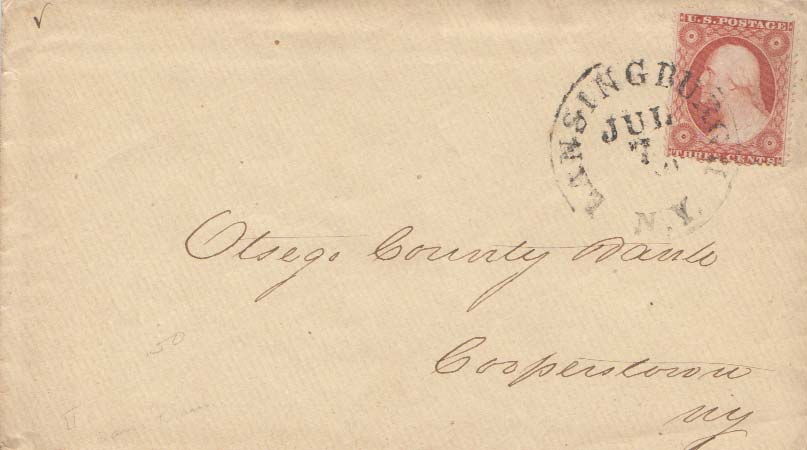 U.S. POSTAGE
THREE CENTS
LANSINGBURGH
JUL
7
N.Y.
Otsego County Bank
Cooperstown
NY
.50